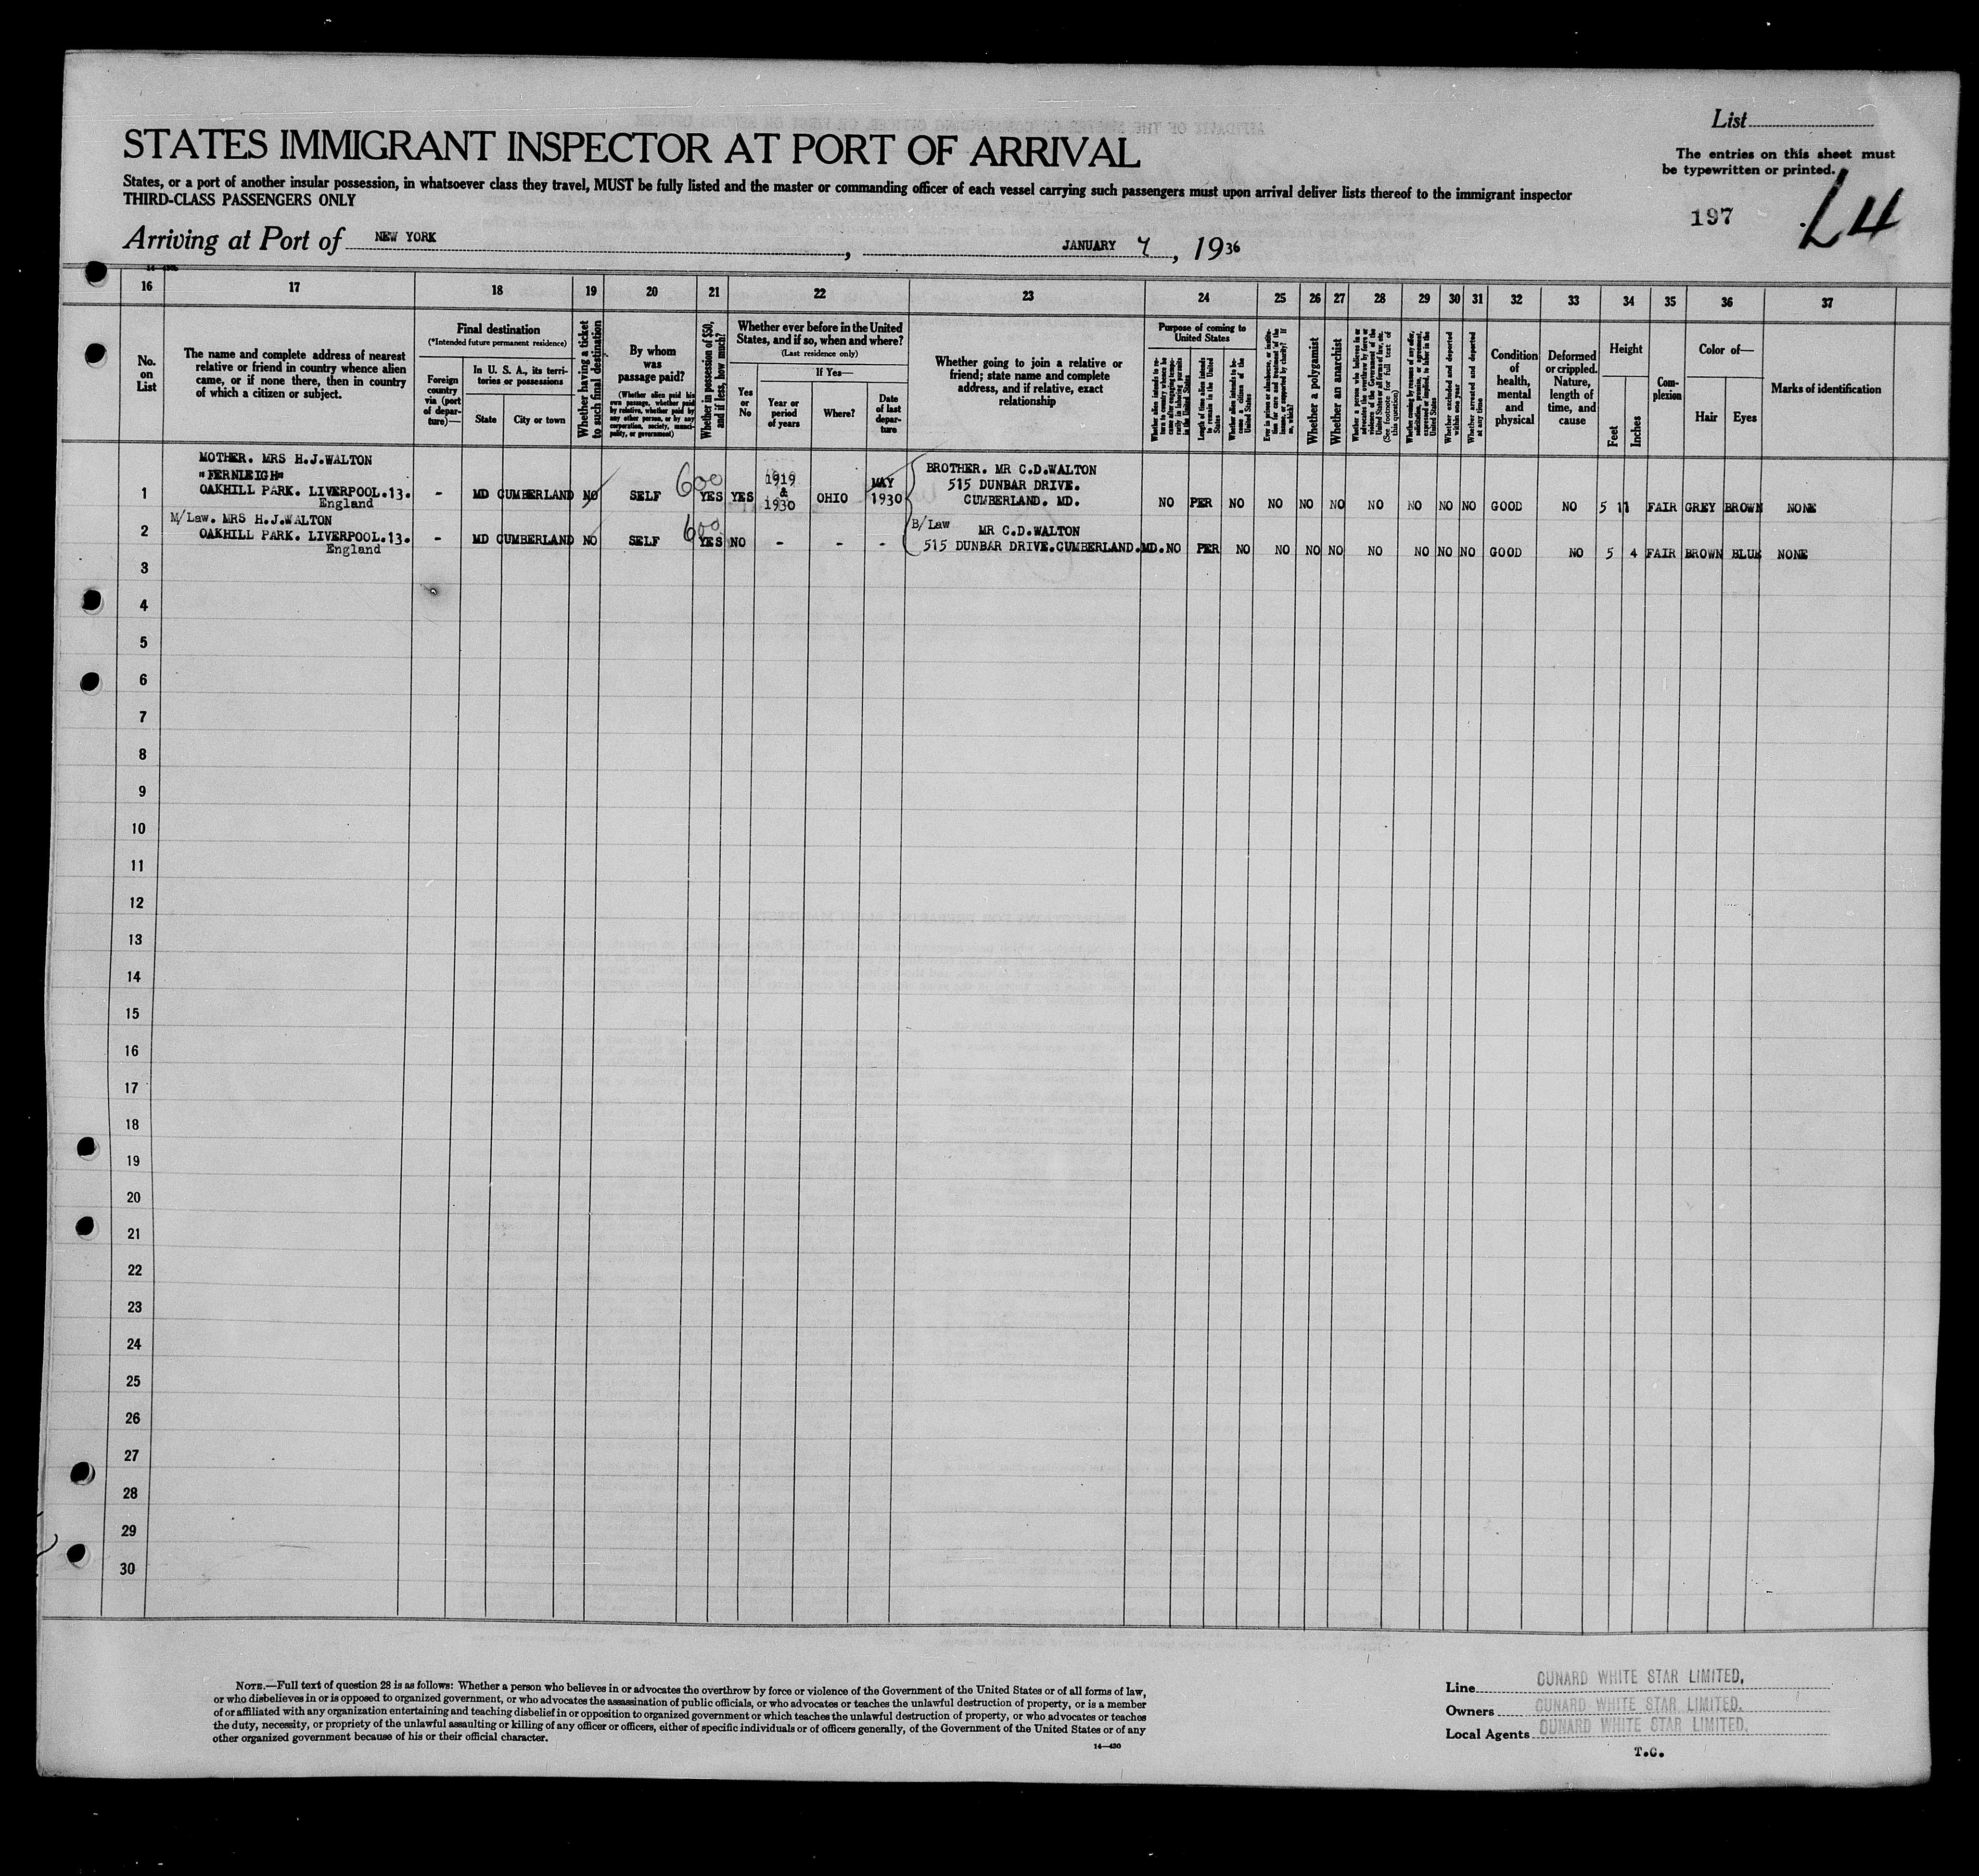 List
STATES IMMIGRANT INSPECTOR AT PORT OF ARRIVAL
The entries on this sheet must
be typewritten or printed.
States, or a port of another insular possession, in whatsoever class they travel, MUST be fully listed and the master or commanding officer of each vessel carrying such passengers must upon arrival deliver lists thereof to the immigrant inspector
THIRD-CLASS PASSENGERS ONLY
197 L4
Arriving at Port of NEW YORK, JANUARY 7, 1936
16 17 18 19 20 21 22 23 24 25 26 27 28 29 30 31 32 33 34 35 36 37
No.
on
List
The name and complete address of nearest
relative or friend in country whence alien
came, or if none there, then in country
of which a citizen or subject.
Final destination
(*Intended future permanent residence)
Foreign
country
via (port
of depar-
ture)—
In U. S. A., its terri-
tories or possessions
State City or town
Whether having a ticket
to such final destination
By whom
was
passage paid?
(Whether alien paid his
own passage, whether paid
by relative, whether paid by
any other person, or by any
corporation, society, munici-
pality, or government)
Whether in possession of $50,
and if less, how much?
Whether ever before in the United
States, and if so, when and where?
(Last residence only)
Yes
or
No
If Yes—
Year or
period
of years
Where?
Date
of last
depar-
ture
Whether going to join a relative or
friend; state name and complete
address, and if relative, exact
relationship
Purpose of coming to
United States
Length of time alien intends
to remain in the United
States
Whether alien intends to be-
come a citizen of the
United States
Whether a polygamist
Whether an anarchist
(See footnote for full text of
this question)
Whether excluded and deported
within one year
Whether arrested and deported
at any time
Condition
of
health,
mental
and
physical
Deformed
or crippled.
Nature,
length of
time, and
cause
Height
Feet
Inches
Com-
plexion
Color of—
Hair Eyes
Marks of identification
1
MOTHER. MRS H.J.WALTON
"FERNLEIGH"
OAKHILL PARK. LIVERPOOL.13.
England
- MD CUMBERLAND NO SELF 600 YES YES 1919
&
1930 OHIO MAY
1930
BROTHER. MR C.D.WALTON
515 DUNBAR DRIVE.
CUMBERLAND. MD.
NO PER NO NO NO NO NO NO NO NO GOOD NO 5 11 FAIR GREY BROWN NONE
2
M/Law. MRS H.J.WALTON
OAKHILL PARK. LIVERPOOL.13.
England
- MD CUMBERLAND NO SELF 600 YES NO - - -
B/Law MR C.D.WALTON
515 DUNBAR DRIVE.CUMBERLAND.MD.
NO PER NO NO NO NO NO NO NO NO GOOD NO 5 4 FAIR BROWN BLUE NONE
3
4
5
6
7
8
9
10
11
12
13
14
15
16
17
18
19
20
21
22
23
24
25
26
27
28
29
30
NOTE.—Full text of question 28 is as follows: Whether a person who believes in or advocates the overthrow by force or violence of the Government of the United States or of all forms of law,
or who disbelieves in or is opposed to organized government, or who advocates the assassination of public officials, or who advocates or teaches the unlawful destruction of property, or is a member
of or affiliated with any organization entertaining and teaching disbelief in or opposition to organized government or which teaches the unlawful destruction of property, or who advocates or teaches
the duty, necessity, or propriety of the unlawful assaulting or killing of any officer or officers, either of specific individuals or of officers generally, of the Government of the United States or of any
other organized government because of his or their official character.
14—430
Line CUNARD WHITE STAR LIMITED.
Owners CUNARD WHITE STAR LIMITED.
Local Agents CUNARD WHITE STAR LIMITED.
T.C.